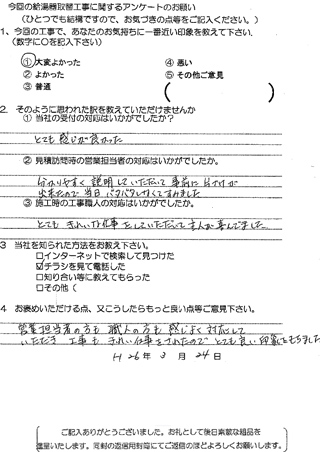 今回の給湯器取替工事に関するアンケートのお願い
(ひとつでも結構ですので、お気づきの点等をご記入ください。)
1、今回の工事で、あなたのお気持ちに一番近い印象を教えて下さい。
(数字に○を記入下さい)
①大変よかった ④悪い
②よかった ⑤その他ご意見
③普通 ( )
2 そのように思われた訳を教えていただけませんか
① 当社の受付の対応はいかがでしたか?
とても感じが良かった
② 見積訪問時の営業担当者の対応はいかがでしたか。
分かりやすく説明していただいて事前に片付けが
出来たので当日バタバタしなくてすみました
③ 施工時の工事職人の対応はいかがでしたか。
とてもきれいな仕事をしていただいて主人が喜んでました
3 当社を知られた方法をお教え下さい。
□インターネットで検索して見つけた
☑チラシを見て電話した
□知り合い等に教えてもらった
□その他(
4 お褒めいただける点、又こうしたらもっと良い点等ご意見下さい。
営業担当者の方も職人の方も感じよく対応して
いただき工事もきれいな仕事をされたのでとても良い印象をもちました
H 26年 3月 24日
ご記入ありがとうございました。お礼として後日素敵な粗品を
進呈いたします。同封の返信用封筒にてご返信のほどよろしくお願いします。